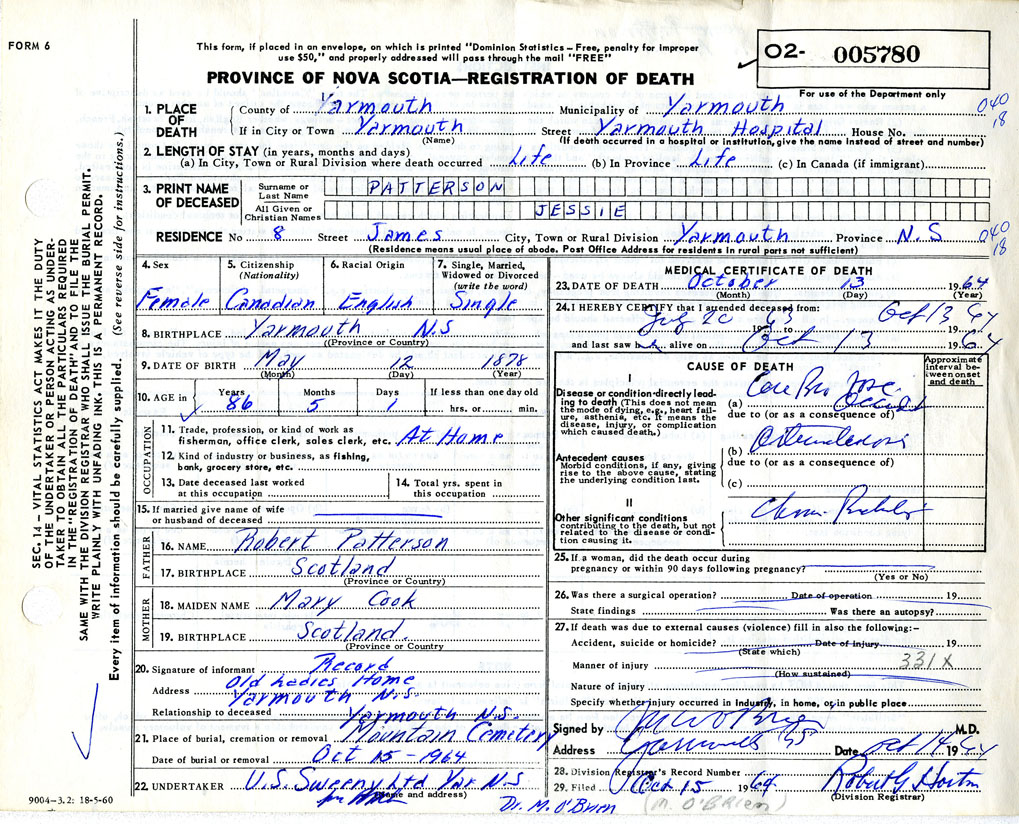 FORM 6
This form, if placed in an envelope, on which is printed "Dominion Statistics – Free, penalty for improper
use $50," and properly addressed will pass through the mail "FREE"
PROVINCE OF NOVA SCOTIA—REGISTRATION OF DEATH
O2- 005780
For use of the Department only
1. PLACE OF DEATH
County of Yarmouth Municipality of Yarmouth 040
If in City or Town Yarmouth Street Yarmouth Hospital House No. 18
(Name) (If death occurred in a hospital or institution, give the name instead of street and number)
2. LENGTH OF STAY (in years, months and days)
(a) In City, Town or Rural Division where death occurred Life (b) In Province Life (c) In Canada (if immigrant)
3. PRINT NAME OF DECEASED
Surname or Last Name PATTERSON
All Given or Christian Names JESSIE
RESIDENCE No 8 Street James City, Town or Rural Division Yarmouth Province N.S 040
18
(Residence means usual place of abode. Post Office Address for residents in rural parts not sufficient)
4. Sex
Female
5. Citizenship
(Nationality)
Canadian
6. Racial Origin
English
7. Single, Married,
Widowed or Divorced
(write the word)
Single
8. BIRTHPLACE Yarmouth N.S
(Province or Country)
9. DATE OF BIRTH May 12 1878
(Month) (Day) (Year)
10. AGE in Years 86 Months 5 Days 1 If less than one day old
hrs. or min.
OCCUPATION
11. Trade, profession, or kind of work as
fisherman, office clerk, sales clerk, etc. At Home
12. Kind of industry or business, as fishing,
bank, grocery store, etc.
13. Date deceased last worked
at this occupation
14. Total yrs. spent in
this occupation
15. If married give name of wife
or husband of deceased
FATHER
16. NAME Robert Patterson
17. BIRTHPLACE Scotland
(Province or Country)
MOTHER
18. MAIDEN NAME Mary Cook
19. BIRTHPLACE Scotland.
(Province or Country
20. Signature of informant Record
Address Old Ladies Home
Yarmouth N.S.
Relationship to deceased
Yarmouth N.S.
21. Place of burial, cremation or removal Mountain Cemetery
Date of burial or removal Oct 15 - 1964
22. UNDERTAKER U.S. Sweeny Ltd Yar N.S
(Name and address)
9004-3.2: 18-5-60
MEDICAL CERTIFICATE OF DEATH
23. DATE OF DEATH October 13 1964
(Month) (Day) (Year)
24. I HEREBY CERTIFY that I attended deceased from:
July 20 1963 to Oct 13 1964
and last saw h alive on Oct 13 1964
CAUSE OF DEATH
Approximate
interval be-
tween onset
and death
I
Disease or condition directly lead-
ing to death (This does not mean
the mode of dying, e.g., heart fail-
ure, asthenia, etc. It means the
disease, injury, or complication
which caused death.)
(a)
due to (or as a consequence of)
Antecedent causes
Morbid conditions, if any, giving
rise to the above cause, stating
the underlying condition last.
(b)
due to (or as a consequence of)
(c)
II
Other significant conditions
contributing to the death, but not
related to the disease or condi-
tion causing it.
25. If a woman, did the death occur during
pregnancy or within 90 days following pregnancy?
(Yes or No)
26. Was there a surgical operation? Date of operation 19
State findings Was there an autopsy?
27. If death was due to external causes (violence) fill in also the following:–
Accident, suicide or homicide? Date of injury 19
(State which)
Manner of injury 331X
(How sustained)
Nature of injury
Specify whether injury occurred in Industry, in home, or in public place
Signed by M.D.
Address Yarmouth NS Date Oct 14 1964
28. Division Registrar's Record Number
29. Filed Oct 15 1964 Robert G Horton
(Division Registrar)
Dr. M. O'Brien (M. O'BRIEN)
SEC. 14 – VITAL STATISTICS ACT MAKES IT THE DUTY
OF THE UNDERTAKER OR PERSON ACTING AS UNDER-
TAKER TO OBTAIN ALL THE PARTICULARS REQUIRED
IN THE "REGISTRATION OF DEATH" AND TO FILE THE
SAME WITH THE DIVISION REGISTRAR WHO SHALL ISSUE THE BURIAL PERMIT.
WRITE PLAINLY WITH UNFADING INK. THIS IS A PERMANENT RECORD.
Every item of information should be carefully supplied. (See reverse side for instructions.)